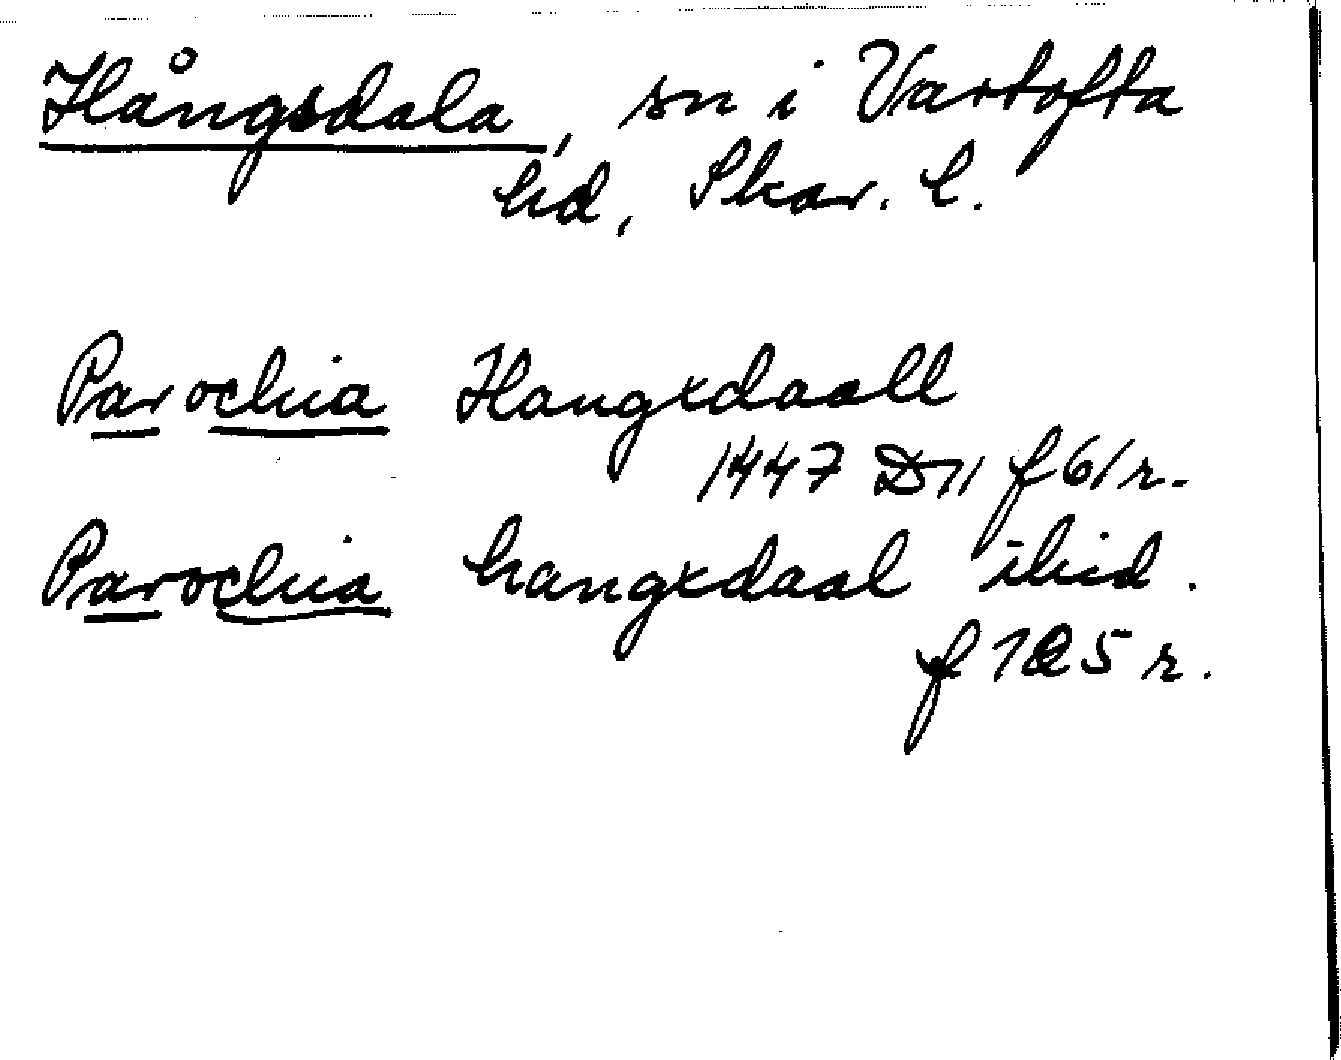 Hångsdala, sn i Vartofta
hd, Skar. l.
Parochia Hangxdaall
1447 D11 f 61 r.
Parochia hangxdaal ibid.
f 125 r.